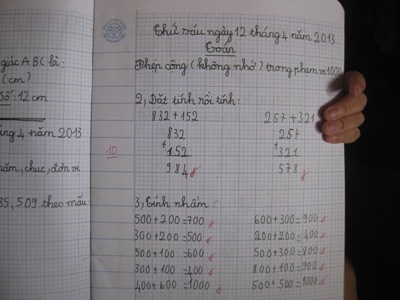 giác ABC là:
(cm)
số: 12 cm
ng 4 năm 2013
răm, chục, đơn vị
85, 509 theo mẫu
Thứ sáu ngày 12 tháng 4 năm 2013
Toán
Phép cộng (không nhớ) trong phạm vi 1000
2, Đặt tính rồi tính:
832 + 152 257 + 321
832 257
+ +
152 321
984 578
10
3, Tính nhẩm:
500 + 200 = 700 600 + 300 = 900
300 + 200 = 500 200 + 200 = 400
500 + 100 = 600 500 + 300 = 800
300 + 100 = 400 800 + 100 = 900
400 + 600 = 1000 500 + 500 = 1000